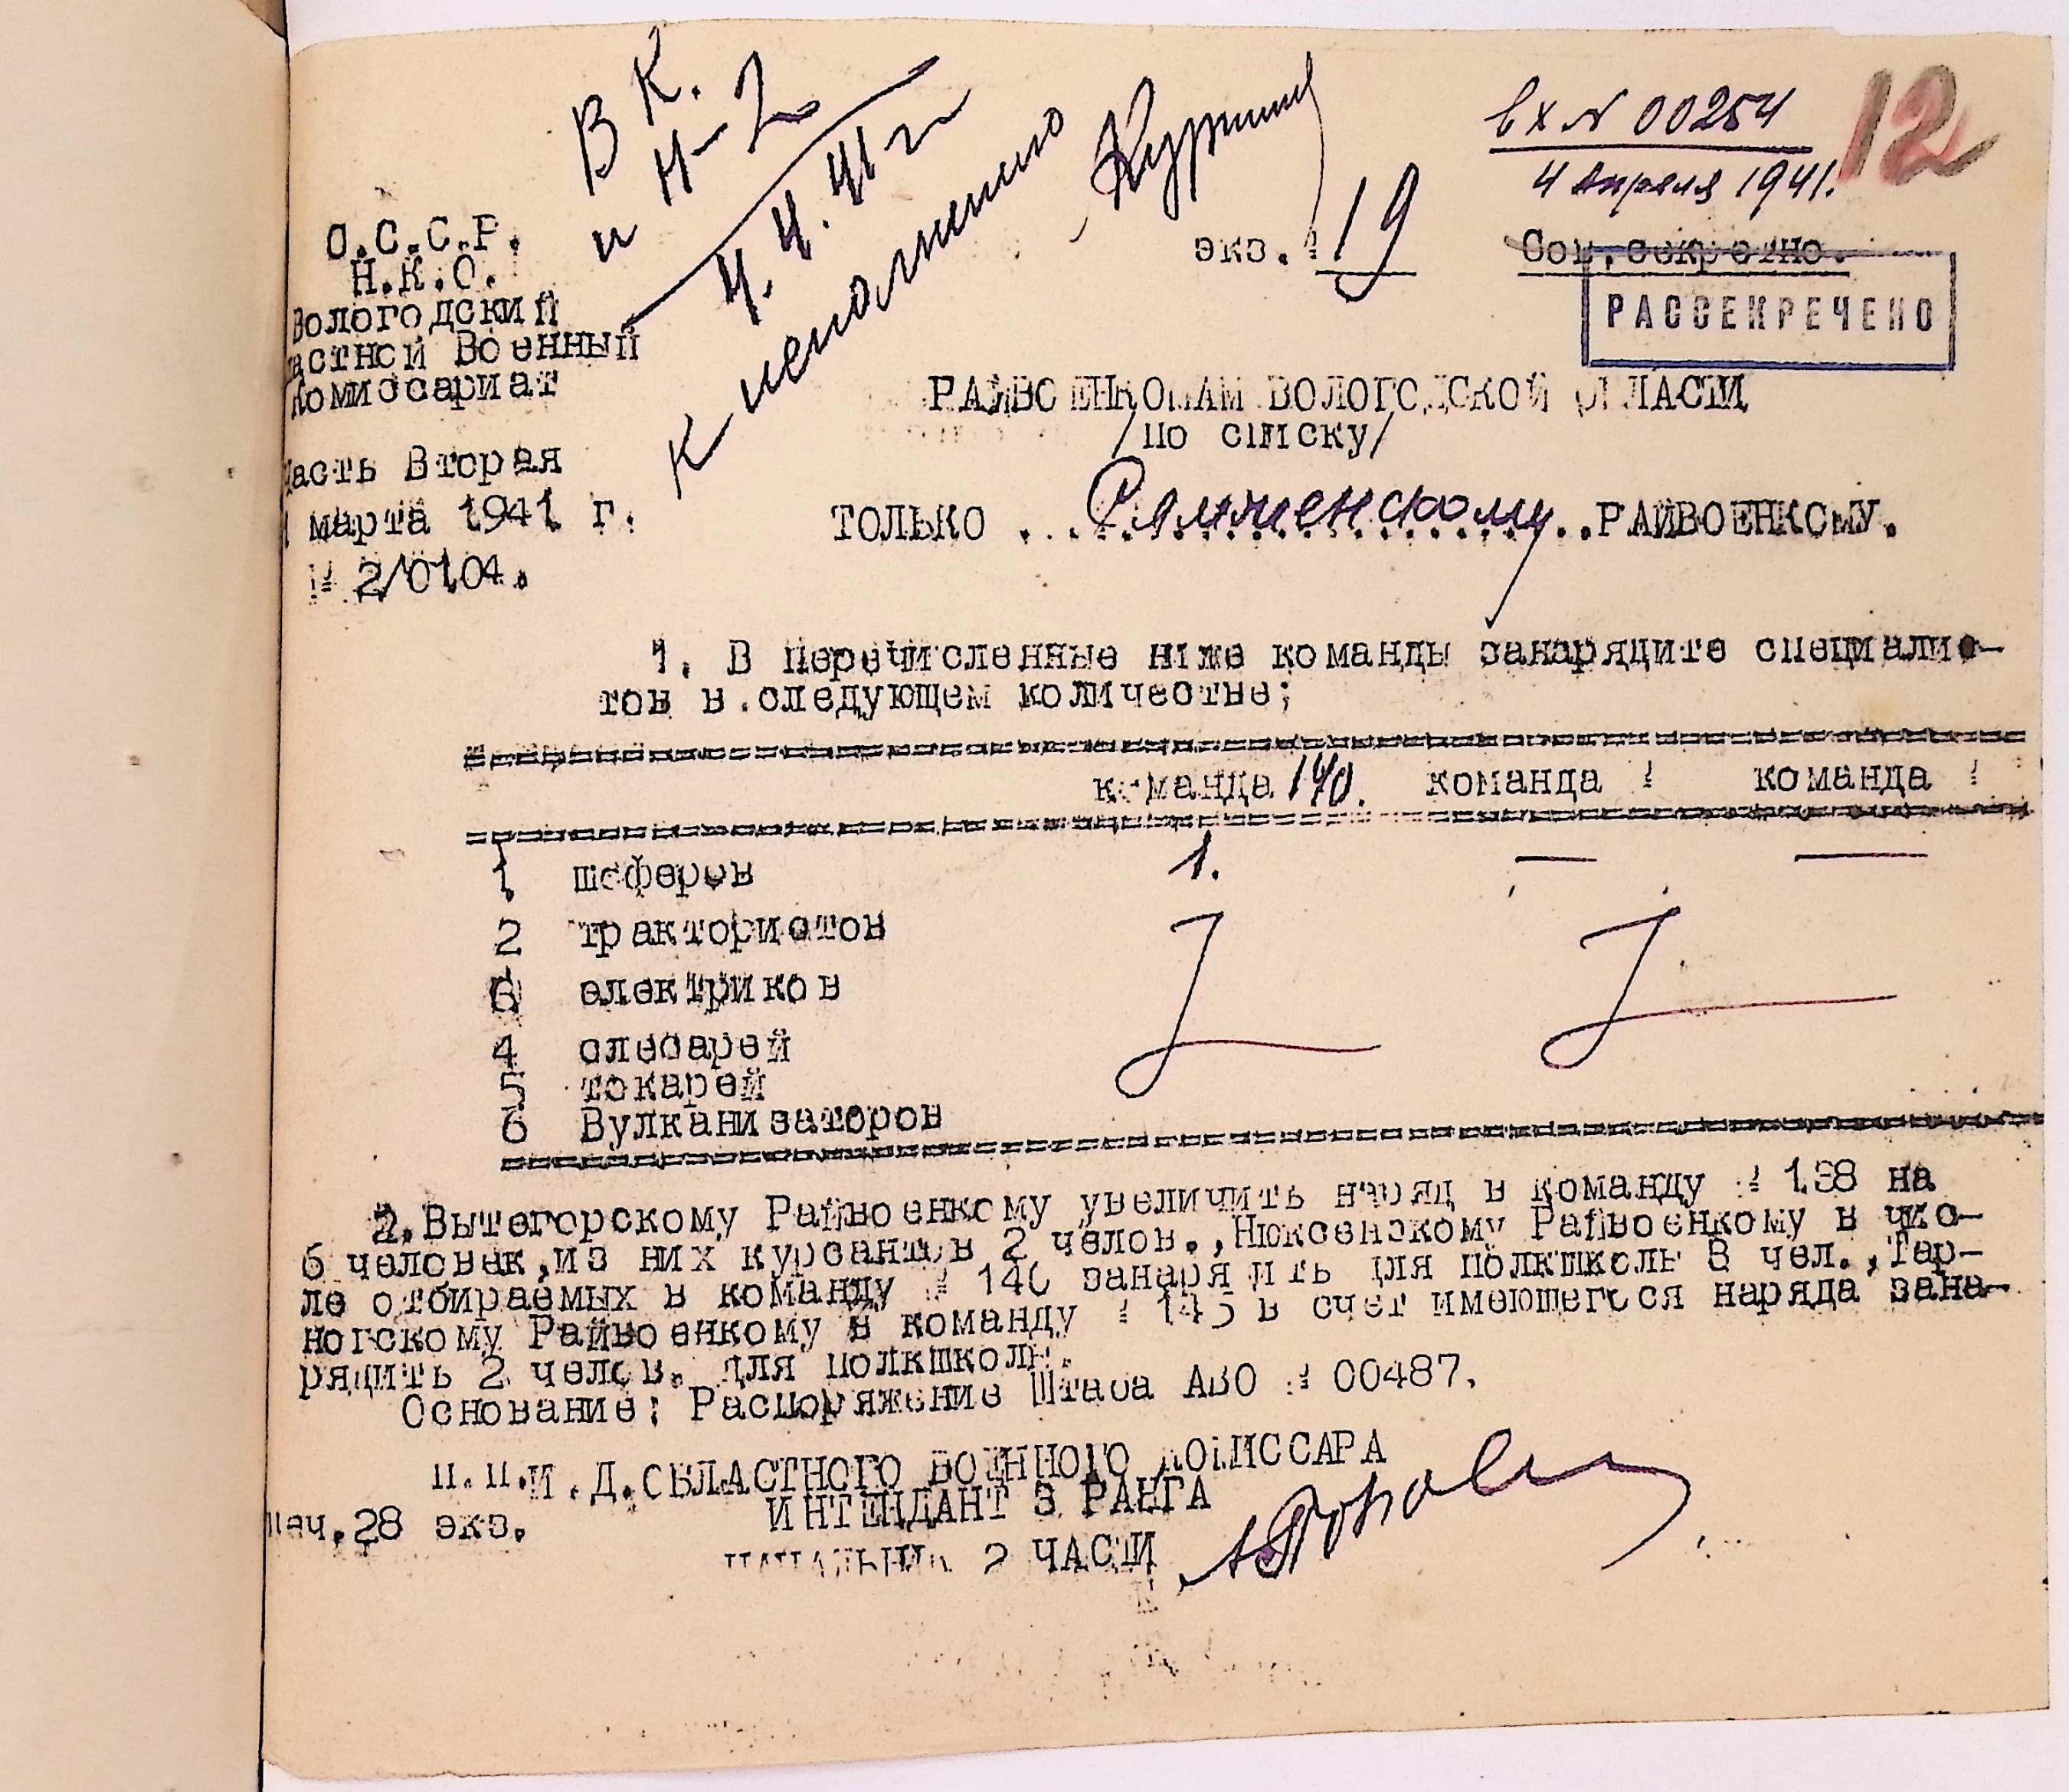 В К.
и Н-2
4.4.41 г
К исполнению
вх N 00254
12
4 апреля 1941.
экз. № 19
Сов.секретно.
РАССЕКРЕЧЕНО
С.С.С.Р.
Н.К.О.
Вологодский
астной Военный
Комиссариат
асть Вторая
марта 1941 г.
№ 2/0104.
РАЙВОЕНКОМАМ ВОЛОГОДСКОЙ ОБЛАСТИ
/по списку/
ТОЛЬКО ... Рамменскому ..РАЙВОЕНКОМУ.
1. В перечисленные ниже команды занарядите специалис-
тов в следующем количестве;
команда 140. команда № команда №
1 шоферов 1. — —
2 трактористов
3 электриков
4 слесарей
5 токарей
6 Вулканизаторов
2.Вытегорскому Райвоенкому увеличить наряд в команду № 138 на
6 человек,из них курсантов 2 челов.,Нюксенскому Райвоенкому в чис-
ле отбираемых в команду № 140 занарядить для полкшколы 8 чел.,Тар-
ногскому Райвоенкому в команду № 145 в счет имеющегося наряда зана-
рядить 2 челов. для полкшколы.
Основание: Распоряжение Штаба АВО № 00487.
п.п.И.Д.ОБЛАСТНОГО ВОЕННОГО КОМИССАРА
ИНТЕНДАНТ 3 РАНГА
печ.28 экз.
НАЧАЛЬНИК 2 ЧАСТИ